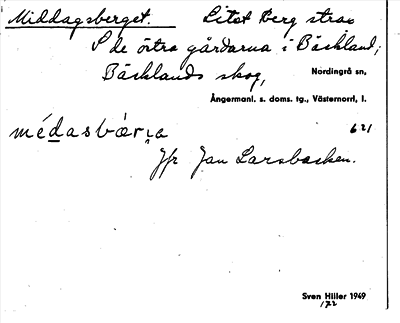 Middagsberget. Litet berg strax
S de östra gårdarna i Bäckland;
Bäcklands skog,
Nordingrå sn,
Ångermanl. s. doms. tg., Västernorrl. l.
médasbær̥ɪa 621
Jfr Jan Larsbacken.
Sven Hiller 1949
172